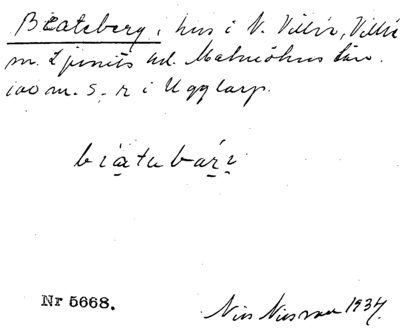 Beateberg, hus i V. Villie, Villie
m. Ljunits hd. Malmöhus län.
100 m. S. r i Ugglarp.
biatabäri
Nr 5668.
Nils Nilsson 1934.